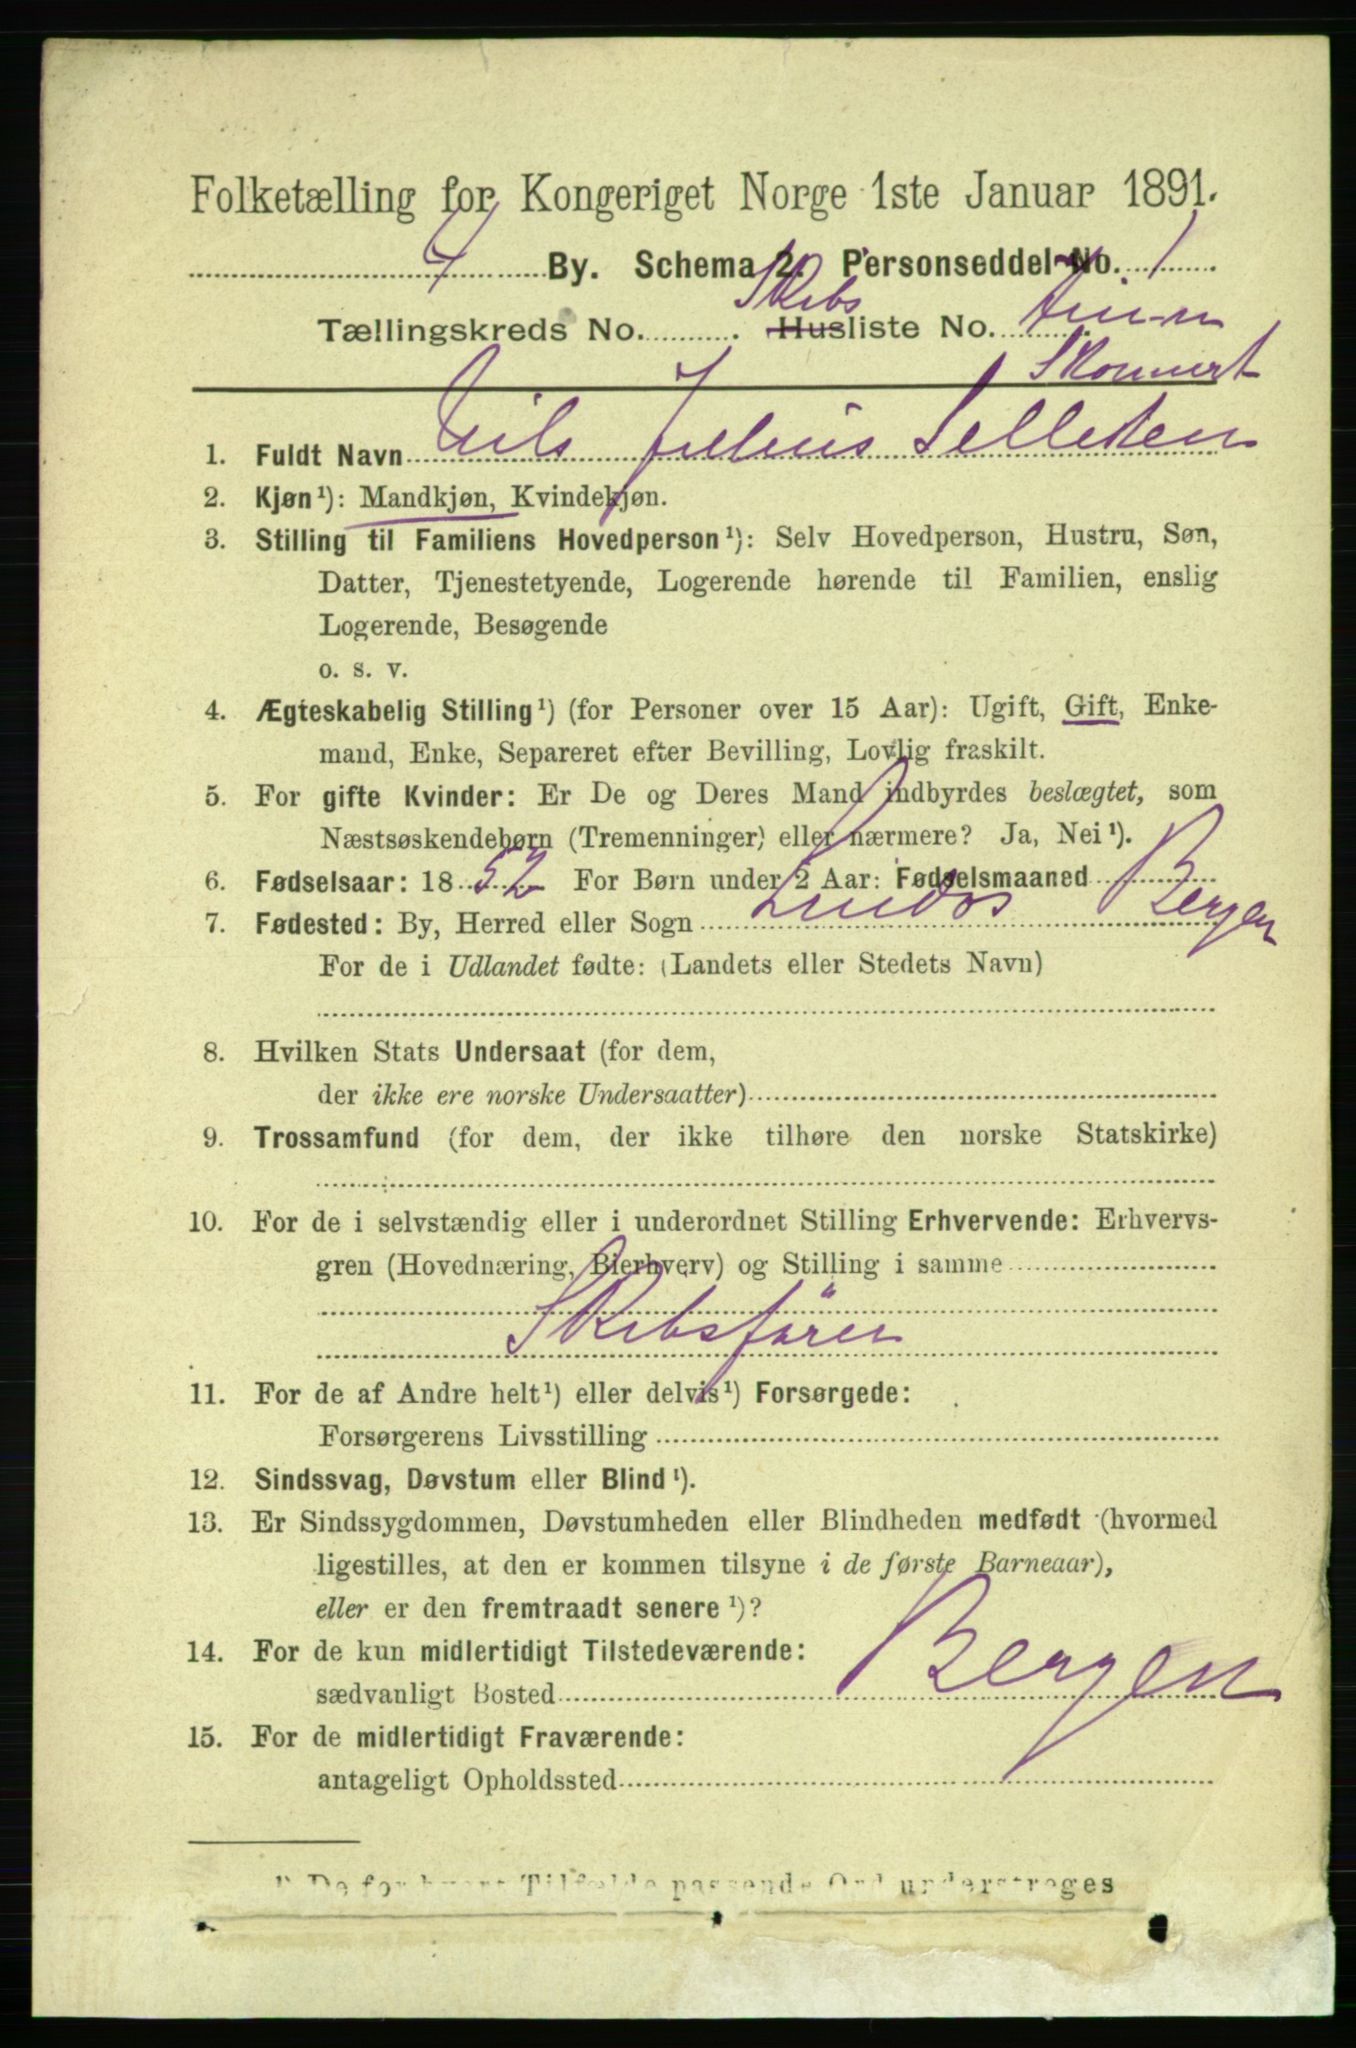 Folketælling for Kongeriget Norge 1ste Januar 1891.
By. Schema 2. Personseddel No. 1
Skibs
Tællingskreds No. . Husliste No.
Skonnert
1. Fuldt Navn Nils Julius Selleken
2. Kjøn¹): Mandkjøn, Kvindekjøn.
3. Stilling til Familiens Hovedperson¹): Selv Hovedperson, Hustru, Søn,
Datter, Tjenestetyende, Logerende hørende til Familien, enslig
Logerende, Besøgende
o. s. v.
4. Ægteskabelig Stilling¹) (for Personer over 15 Aar): Ugift, Gift, Enke-
mand, Enke, Separeret efter Bevilling, Lovlig fraskilt.
5. For gifte Kvinder: Er De og Deres Mand indbyrdes beslægtet, som
Næstsøskendebørn (Tremenninger) eller nærmere? Ja, Nei¹).
6. Fødselsaar: 1852 For Børn under 2 Aar: Fødselsmaaned
7. Fødested: By, Herred eller Sogn Lindos Bergen
For de i Udlandet fødte: (Landets eller Stedets Navn)
8. Hvilken Stats Undersaat (for dem,
der ikke ere norske Undersaatter)
9. Trossamfund (for dem, der ikke tilhøre den norske Statskirke)
10. For de i selvstændig eller i underordnet Stilling Erhvervende: Erhvervs-
gren (Hovednæring, Bierhverv) og Stilling i samme
Skibsförer
11. For de af Andre helt¹) eller delvis¹) Forsørgede:
Forsørgerens Livsstilling
12. Sindssvag, Døvstum eller Blind¹).
13. Er Sindssygdommen, Døvstumheden eller Blindheden medfødt (hvormed
ligestilles, at den er kommen tilsyne i de første Barneaar),
eller er den fremtraadt senere¹)?
14. For de kun midlertidigt Tilstedeværende:
sædvanligt Bosted Bergen
15. For de midlertidigt Fraværende:
antageligt Opholdssted
¹) De for hvert Tilfælde passende Ord understreges